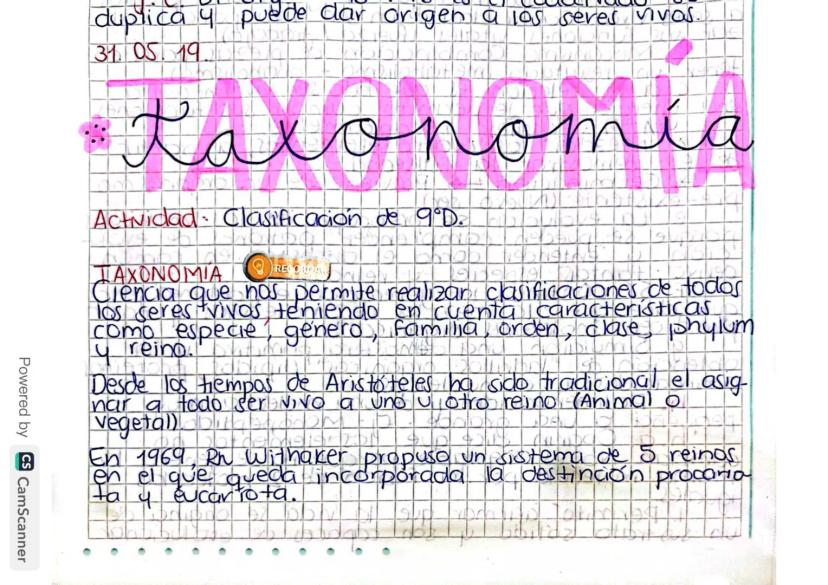 duplica y puede dar origen a los seres vivos.
31. 05. 19.
TAXONOMÍA
Taxonomía
Actividad: Clasificación de 9°D.
TAXONOMÍA
Ciencia que nos permite realizar clasificaciones de todos
los seres vivos, teniendo en cuenta características
como especie, género, familia, orden, clase, phylum
y reino.
Desde los tiempos de Aristóteles ha sido tradicional el asig-
nar a todo ser vivo a uno u otro reino (Animal o
vegetal)
En 1969, Rh Withaker propuso un sistema de 5 reinos
en el que queda incorporada la destinción procario-
ta y eucariota.
Powered by CS CamScanner